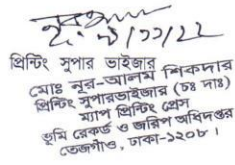 প্রিন্টিং সুপার ভাইজার
মোঃ নূর-আলম শিকদার
প্রিন্টিং সুপারভাইজার (চঃ দাঃ)
ম্যাপ প্রিন্টিং প্রেস
ভূমি রেকর্ড ও জরিপ অধিদপ্তর
তেজগাঁও, ঢাকা-১২০৮।